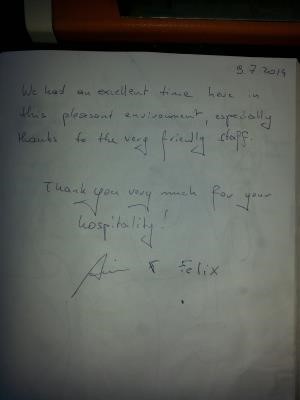 9.7.2019
We had an excellent time here in
this pleasant environment, especially
thanks to the very friendly staff.
Thank you very much for your
hospitality!
& Felix